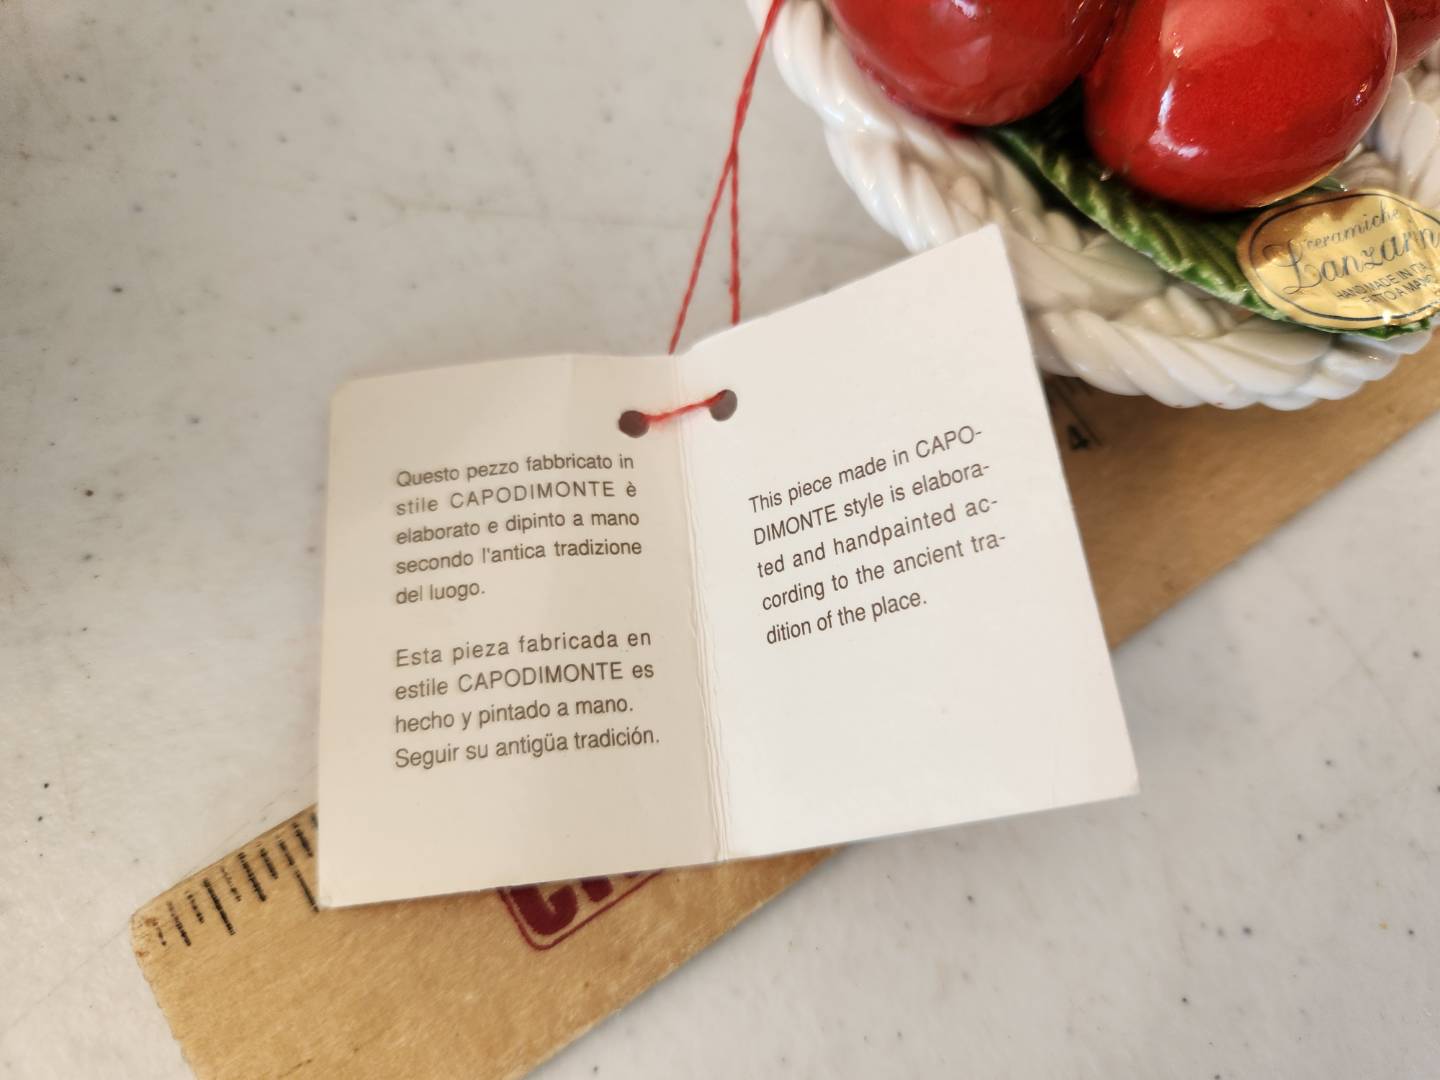 Questo pezzo fabbricato in
stile CAPODIMONTE è
elaborato e dipinto a mano
secondo l'antica tradizione
del luogo.
Esta pieza fabricada en
estile CAPODIMONTE es
hecho y pintado a mano.
Seguir su antigüa tradición.
This piece made in CAPO-
DIMONTE style is elabora-
ted and handpainted ac-
cording to the ancient tra-
dition of the place.
Ceramiche
HAND MADE IN
FATTO A MANO
4